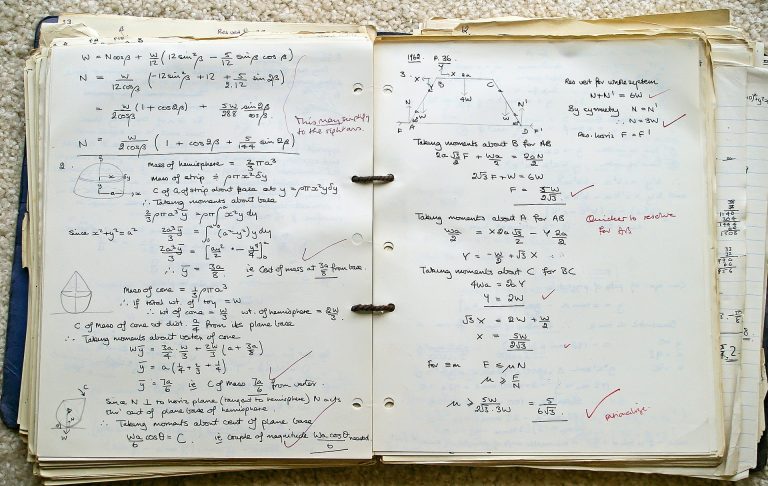 W = N cos β + W/12 (12 sin²β − 5/12 sin β cos β)
N = W/12cosβ (−12 sin²β + 12 + 5/2.12 sin 2β)
= W/2cosβ (1 + cos 2β) + 5W/288 sin 2β/cos β
This may simplify
to the right ans.
N = W/2cosβ (1 + cos 2β + 5/144 sin 2β)
2.
Mass of hemisphere = 2/3 ρπa³
Mass of strip = ρπx²δy
C of G of strip about base ato y = ρπx²yδy
∴ Taking moments about base
2/3 ρπa³ȳ = ρπ ∫ x²y dy
Since x² + y² = a² 2a³ȳ/3 = ∫ (a² − y²) y dy
2a³ȳ/3 = [a²y²/2 − y⁴/4]
∴ ȳ = 3a/8 ie C of mass at 3a/8 from base.
Mass of cone = 1/3 ρπa³
∴ if total wt. of toy = W
∴ wt of cone = W/3 wt. of hemisphere = 2W/3
C of Mass of cone at dist. a/4 from its plane base
∴ Taking moments about vertex of cone
Wȳ = 3a/4 · W/3 + 2W/3 (a + 3a/8)
ȳ = a(1/4 + 2/3 + 1/4)
ȳ = 7a/6 ie C of Mass 7a/6 from vertex.
Since N ⊥ to horiz plane (tangent to hemisphere) N acts
thro' cent of plane base of hemisphere.
∴ Taking moments about cent of plane base
Wa/6 cos θ = C ie couple of magnitude Wa cos θ/6 needed.
1962. P. 36
3.
X Y B 2a C
4W
N N'
F A D F'
Res vert for whole system
N + N' = 6W
By symmetry N = N'
∴ N = 3W
Res. horiz F = F'
Taking moments about B for AB
2a√3/2 F + Wa/2 = 2aN/2
2√3 F + W = 6W
F = 5W/2√3
Taking moments about A for AB
Quicker to resolve
for AB
Wa/2 = X 2a√3/2 − Y 2a/2
Y = −W/2 + √3 X
Taking moments about C for BC
4Wa = 2aY
Y = 2W
√3 X = 2W + W/2
X = 5W/2√3
for eqm F ≤ μN
μ ≥ F/N
μ ≥ 5W/2√3.3W = 5/6√3
rationalise